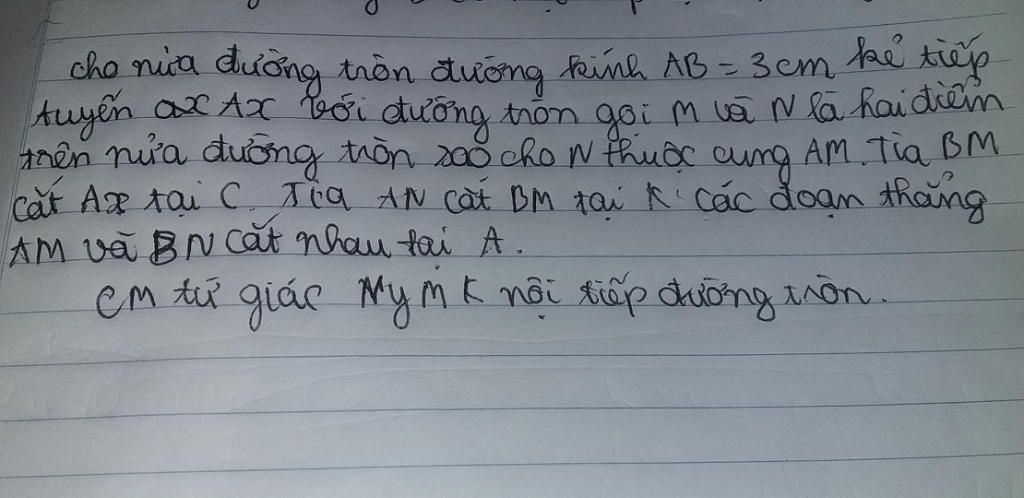 cho nửa đường tròn đường kính AB = 3cm kẻ tiếp
tuyến Ax với đường tròn gọi M và N là hai điểm
trên nửa đường tròn sao cho N thuộc cung AM. Tia BM
cắt Ax tại C. Tia AN cắt BM tại K. Các đoạn thẳng
AM và BN cắt nhau tại A.
CM tứ giác NyMK nội tiếp đường tròn.